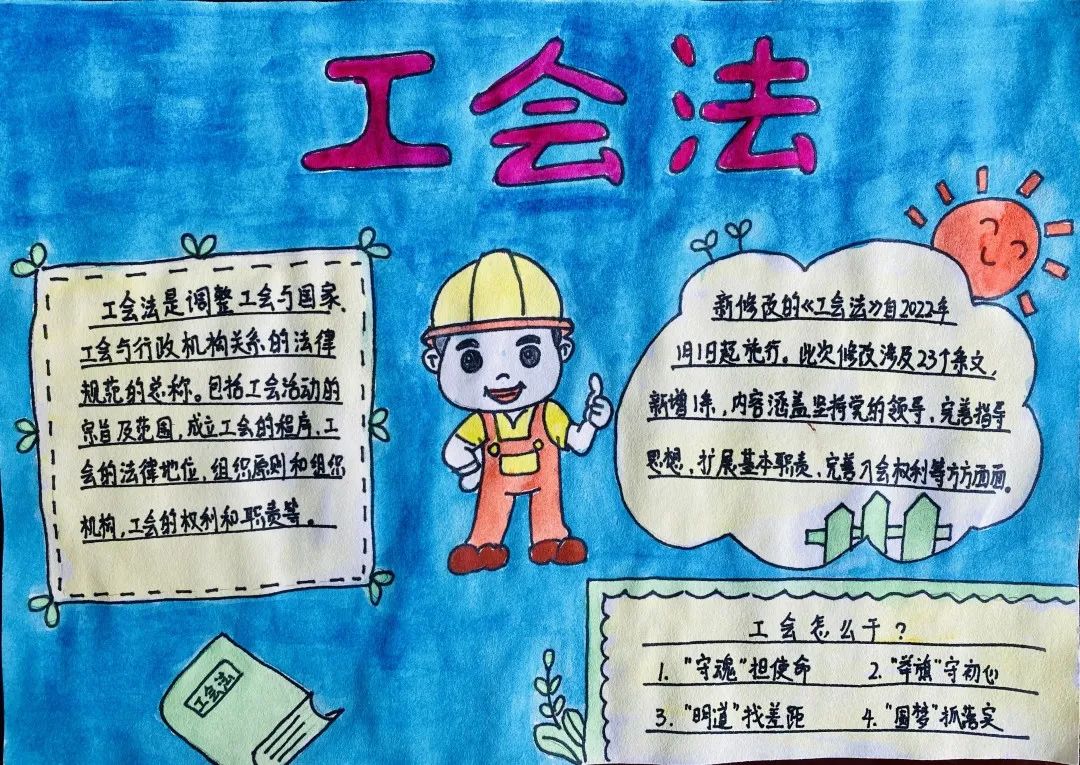 工会法
工会法是调整工会与国家、
工会与行政机构关系的法律
规范的总称。包括工会活动的
宗旨及范围,成立工会的程序,工
会的法律地位,组织原则和组织
机构,工会的权利和职责等。
新修改的《工会法》自2022年
1月1日起施行。此次修改涉及23个条文,
新增1条,内容涵盖坚持党的领导、完善指导
思想、扩展基本职责、完善入会权利等方方面面。
工会法
工会怎么干?
1. "守魂"担使命 2. "举旗"守初心
3. "明道"找差距 4. "圆梦"抓落实